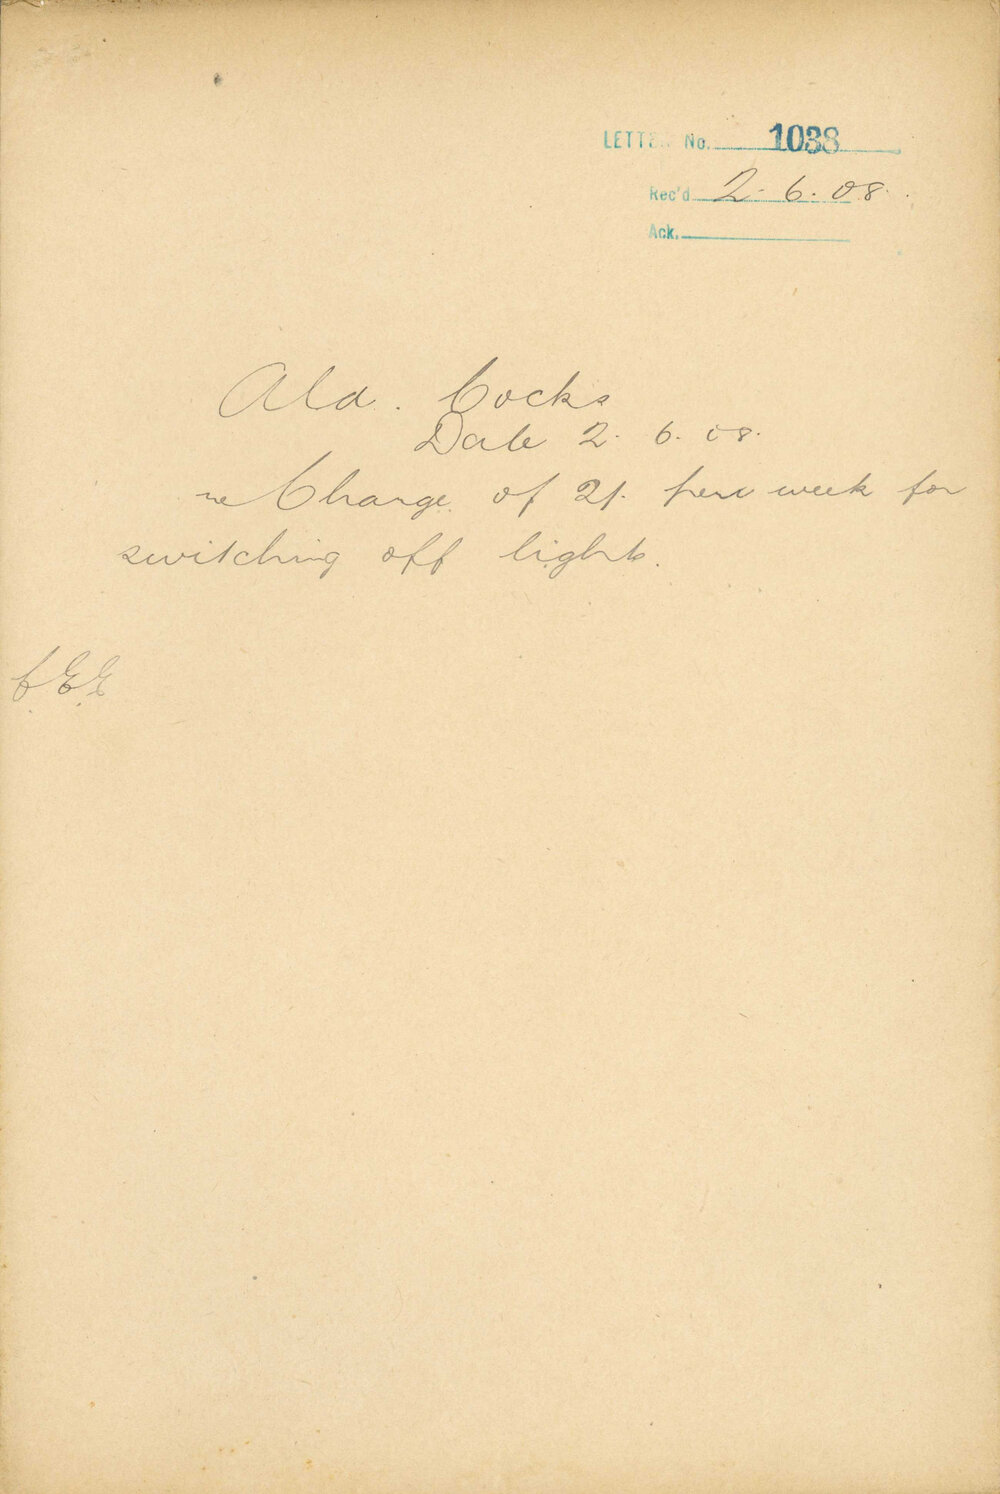 LETTER No. 1038
Rec'd 2. 6. 08.
Ack.
Ald. Cocks
Date 2. 6. 08.
re Charge of 2/. per week for
switching off lights.